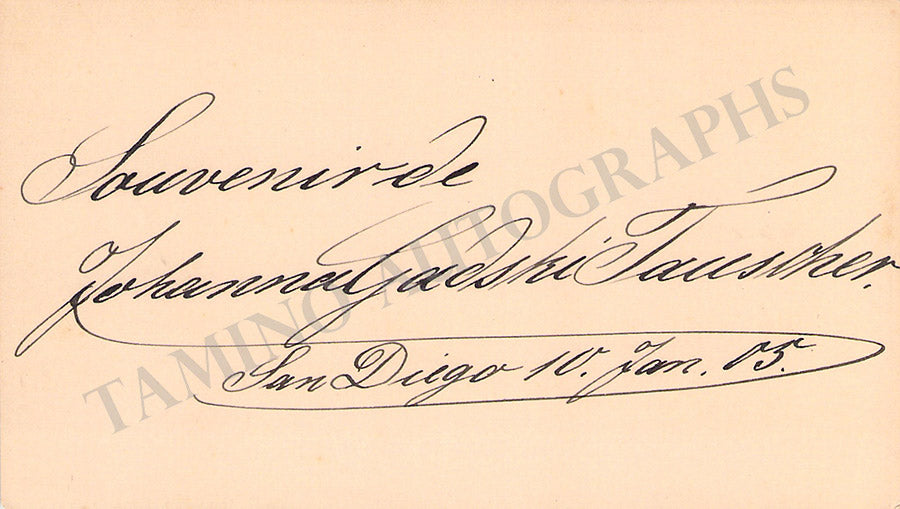 Souvenir de
Johanna Gadski Tauscher.
San Diego 10. Jan. 05.
TAMINO AUTOGRAPHS